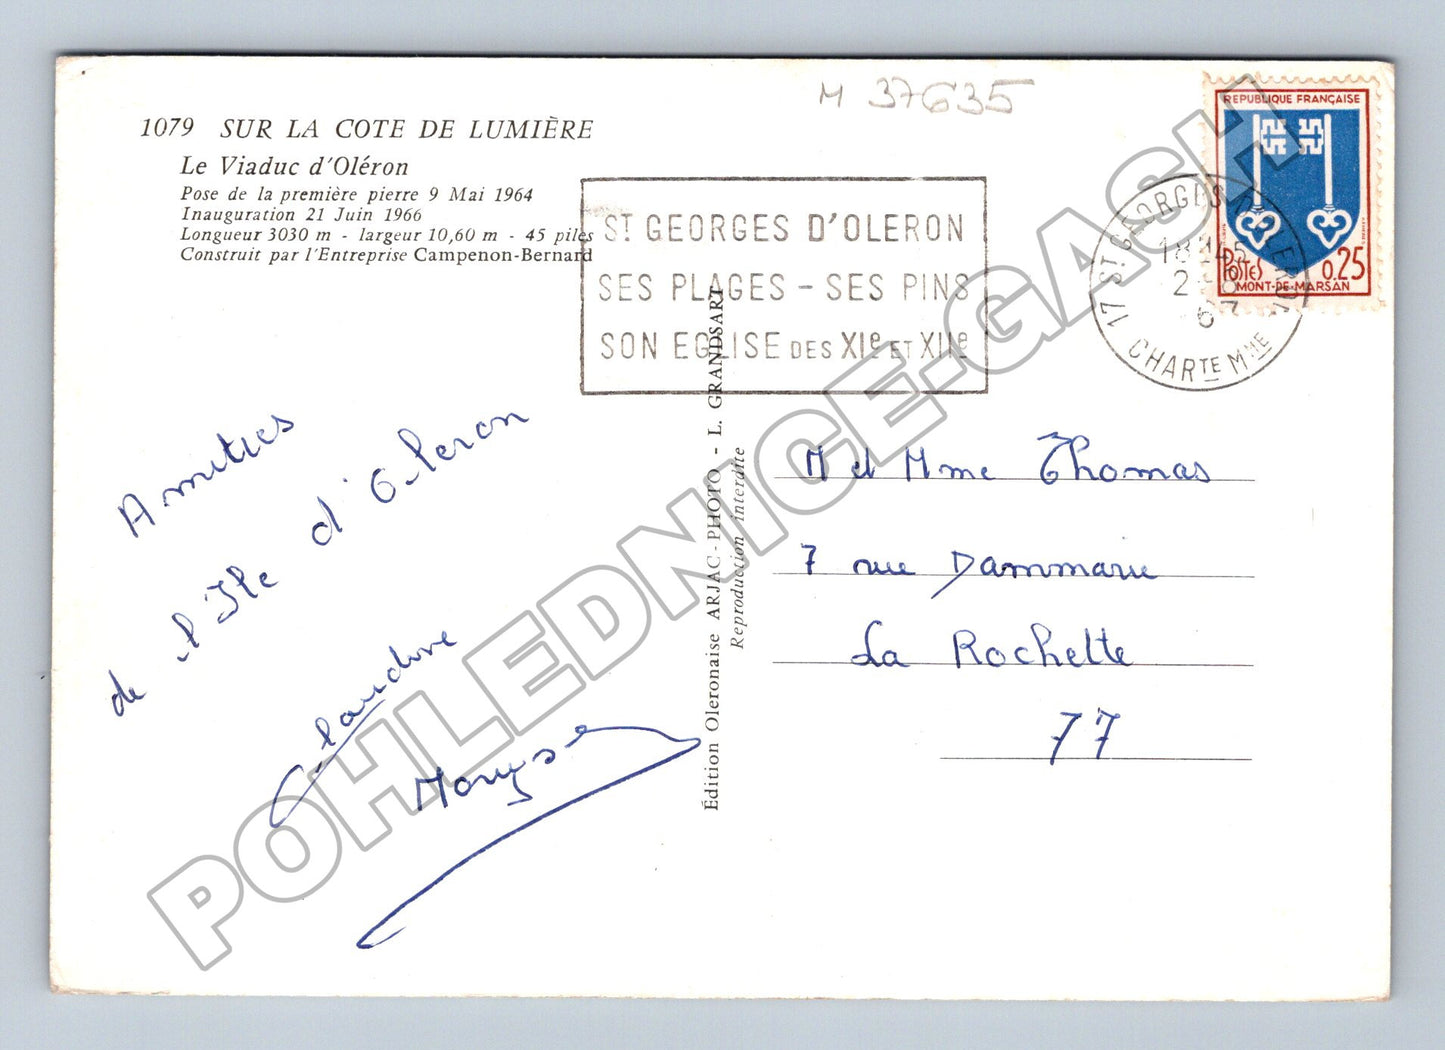 M 37635
1079 SUR LA COTE DE LUMIÈRE
Le Viaduc d'Oléron
Pose de la première pierre 9 Mai 1964
Inauguration 21 Juin 1966
Longueur 3030 m - largeur 10,60 m - 45 piles
Construit par l'Entreprise Campenon-Bernard
ST GEORGES D'OLERON
SES PLAGES - SES PINS
SON EGLISE DES XIe ET XIIe
REPUBLIQUE FRANÇAISE
POSTES 0.25
MONT-DE-MARSAN
17 ST GEORGES D'OLERON
18H45
2
67
CHARTE MME
Amitiés
de l'Ile d'Oleron
Claudine
Maryse
Édition Oleronaise ARJAC-PHOTO - L. GRANDSART
Reproduction interdite
M et Mme Thomas
7 rue Dammarie
La Rochette
77
POHLEDNICE-GASH